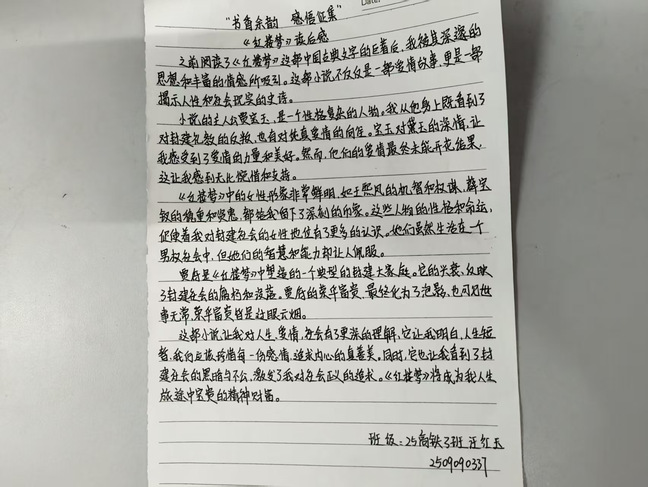 Date:
"书香余韵 感悟征集"
《红楼梦》读后感
之前阅读了《红楼梦》这部中国古典文学的巨著后,我被其深邃的
思想和丰富的情感所吸引。这部小说不仅仅是一部爱情故事,更是一部
揭示人性和社会现实的史诗。
小说的主人公贾宝玉,是一个性格复杂的人物。我从他身上既看到了
对封建礼教的反叛,也有对纯真爱情的向往。宝玉对黛玉的深情,让
我感受到了爱情的力量和美好。然而,他们的爱情最终未能开花结果,
这让我感到无比惋惜和
《红楼梦》中的女性形象非常鲜明,如王熙凤的机智和权谋,薛宝
钗的稳重和贤惠,都给我留下了深刻的印象。这些人物的性格和命运,
促使着我对封建社会的女性地位有了更多的认识。她们虽然生活在一个
男权社会中,但他们的智慧和能力却让人佩服。
贾府是《红楼梦》中塑造的一个典型的封建大家庭。它的兴衰,反映
了封建社会的腐朽和没落。贾府的荣华富贵,最终化为了泡影,也可切世
事无常,荣华富贵皆是过眼云烟。
这部小说,让我对人生,爱情,社会有了更深的理解,它让我明白,人生短
暂,我们应该珍惜每一份感情,追求内心的真善美。同时,它也让我看到了封
建社会的黑暗与不公,激发了我对社会正义的追求。《红楼梦》将成为我人生
旅途中宝贵的精神财富。
班级:25高铁3班 汪红玉
2509090337